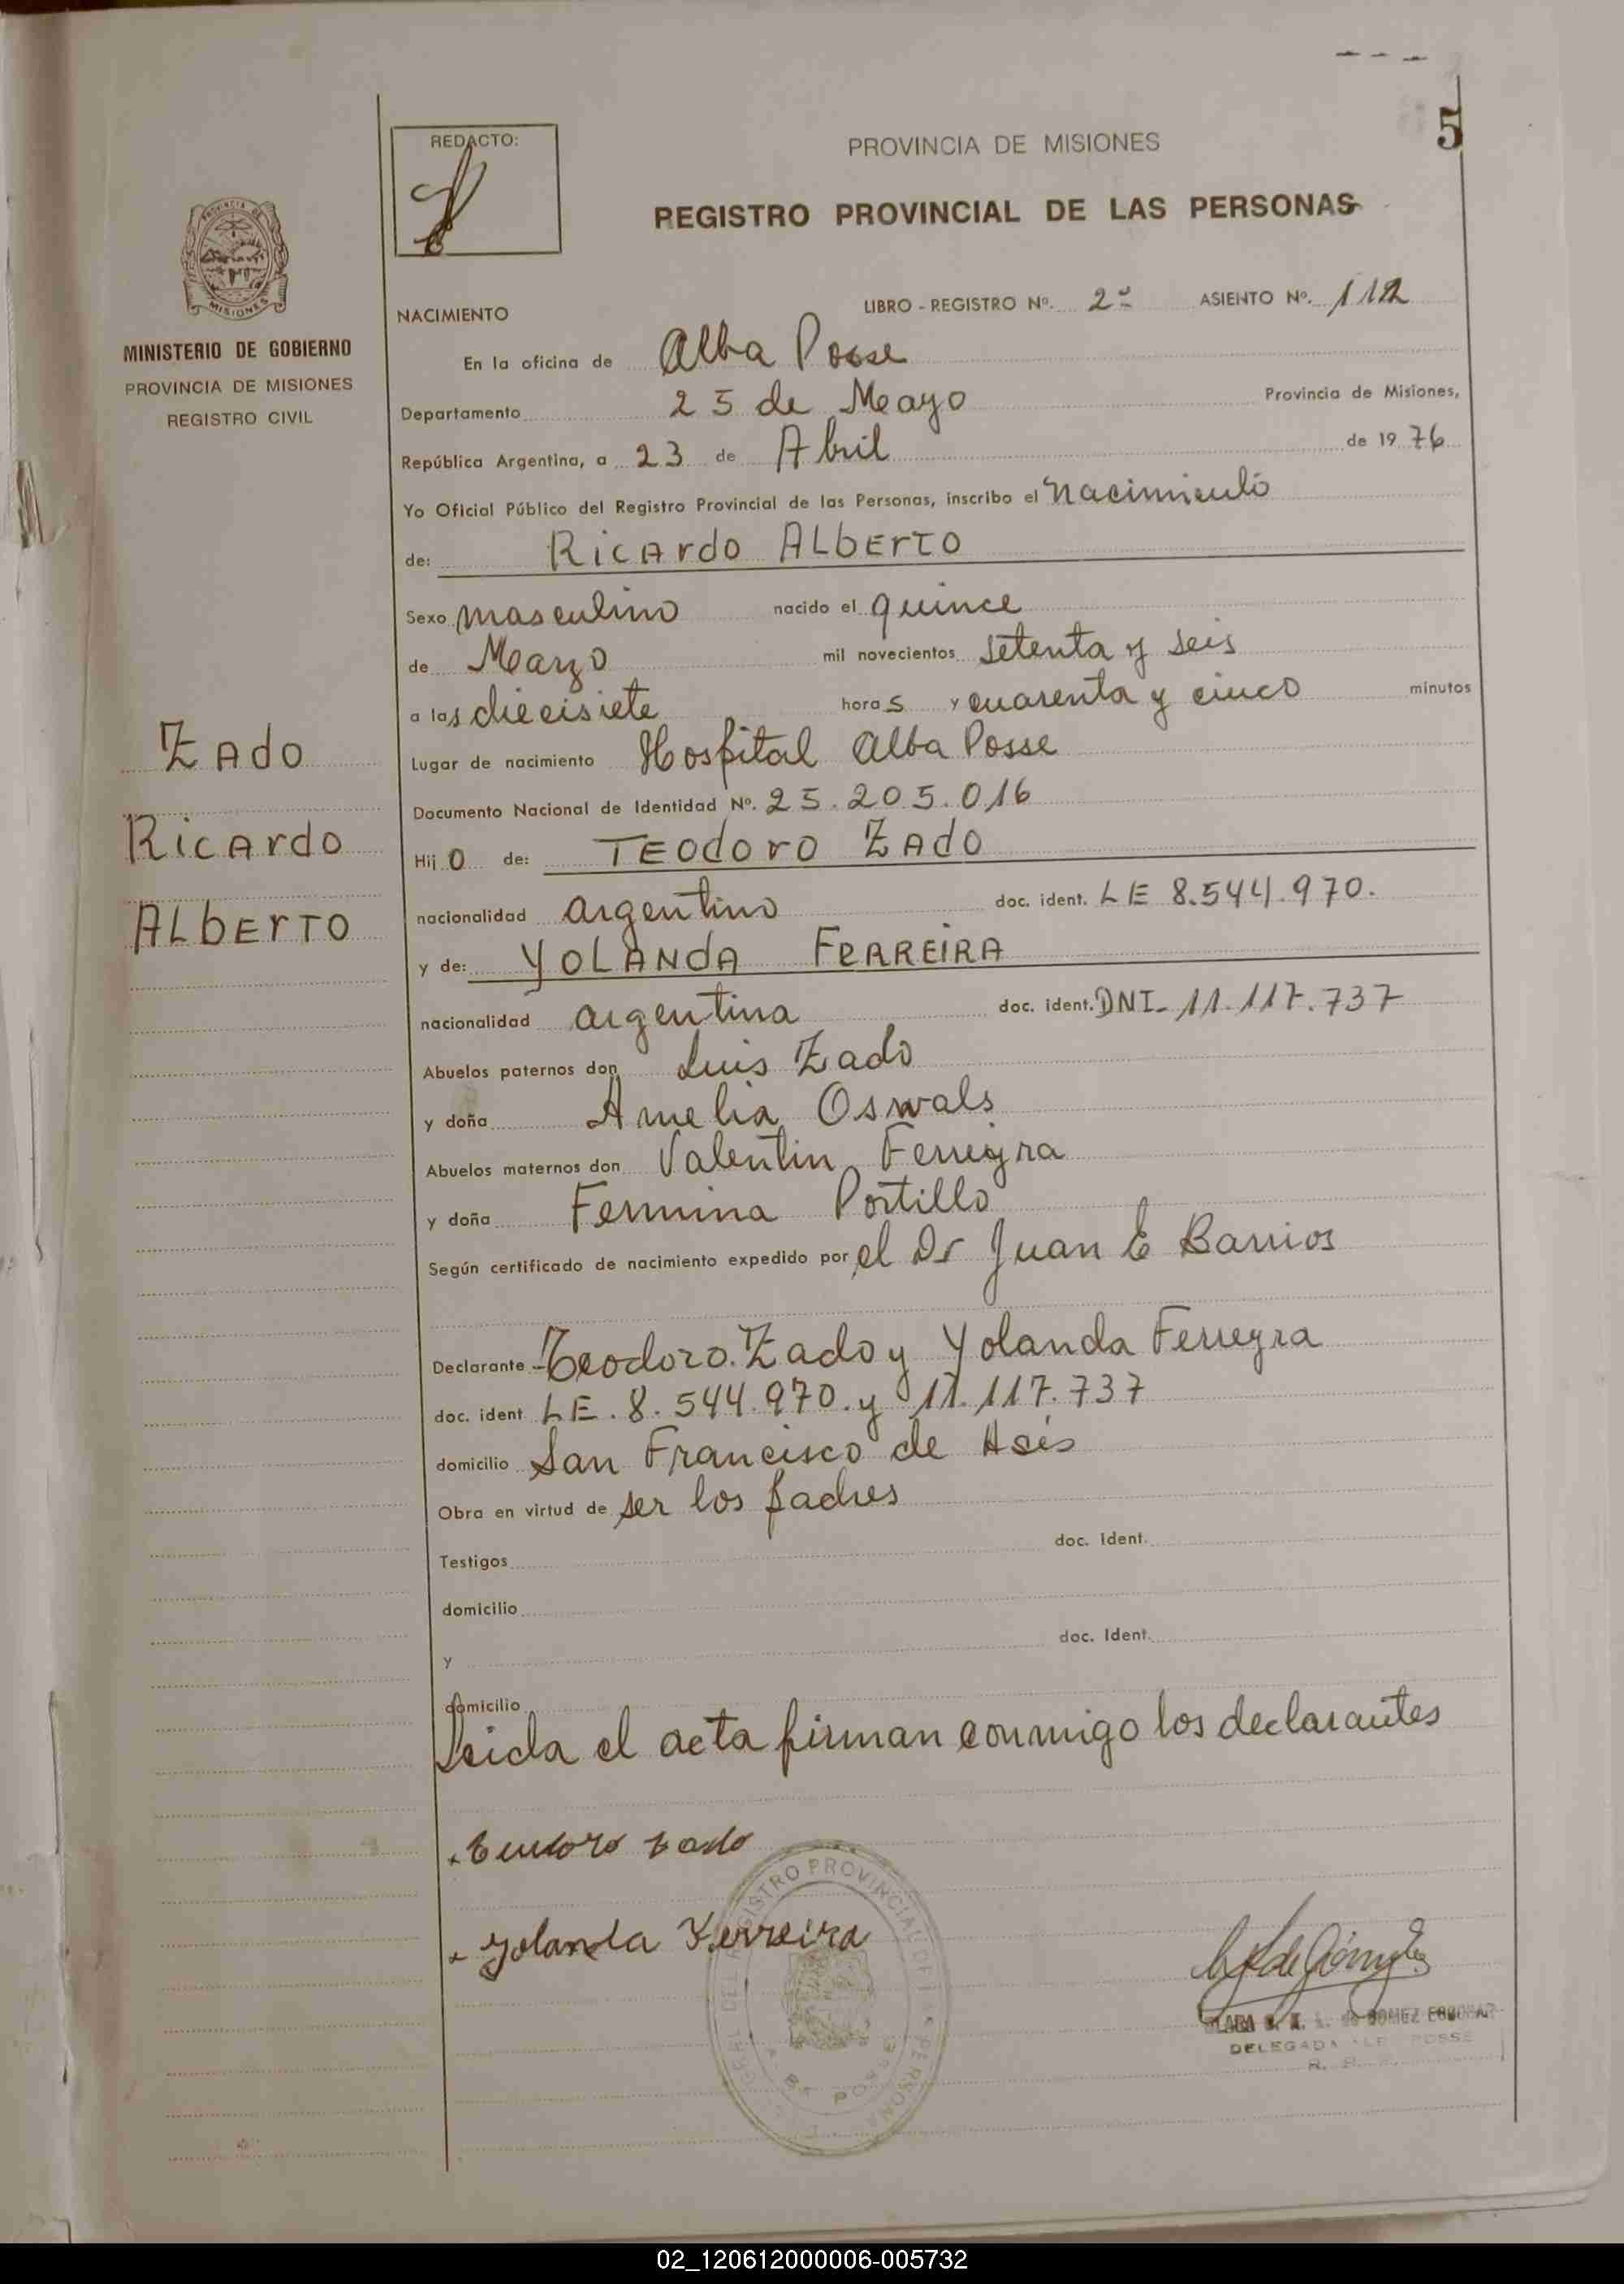 5
REDACTO:
PROVINCIA DE MISIONES
REGISTRO PROVINCIAL DE LAS PERSONAS
PROVINCIA DE
MISIONES
MINISTERIO DE GOBIERNO
PROVINCIA DE MISIONES
REGISTRO CIVIL
Zado
Ricardo
Alberto
NACIMIENTO LIBRO - REGISTRO Nº. 2º ASIENTO Nº. 112
En la oficina de Alba Posse
Departamento 25 de Mayo Provincia de Misiones,
República Argentina, a 23 de Abril de 1976
Yo Oficial Público del Registro Provincial de las Personas, inscribo el Nacimiento
de: Ricardo Alberto
Sexo masculino nacido el quince
de Marzo mil novecientos setenta y seis
a las diecisiete horas y cuarenta y cinco minutos
Lugar de nacimiento Hospital Alba Posse
Documento Nacional de Identidad Nº. 25.205.016
Hijo de: TEodoro Zado
nacionalidad argentino doc. ident. LE 8.544.970.
y de: YOLANDA FERREIRA
nacionalidad argentina doc. ident. DNI- 11.117.737
Abuelos paternos don Luis Zado
y doña Amelia Oswals
Abuelos maternos don Valentin Ferreyra
y doña Fermina Portillo
Según certificado de nacimiento expedido por el Dr Juan E Barrios
Declarante - Teodoro Zado y Yolanda Ferreyra
doc. ident LE. 8.544.970. y 11.117.737
domicilio San Francisco de Asis
Obra en virtud de ser los padres
Testigos doc. Ident.
domicilio
y doc. Ident.
domicilio
Leida el acta firman conmigo los declarantes
Zado
Yolanda Ferreira
REGISTRO PROVINCIAL DE LAS PERSONAS
GOMEZ
DELEGADA POSSE
02_120612000006-005732